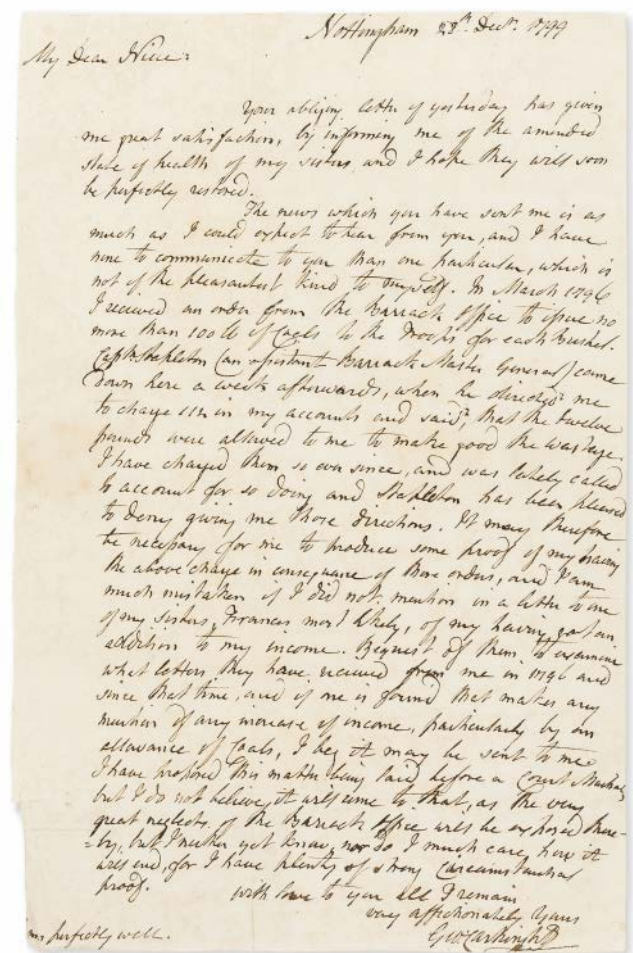 Nottingham 28th. Decr. 1799
My Dear Niece:
Your obliging letter of yesterday has given
me great satisfaction, by informing me of the amended
state of health of my sisters and I hope they will soon
be perfectly restored.
The news which you have sent me is as
much as I could expect to hear from you, and I have
none to communicate to you than one particular, which is
not of the pleasantest kind to myself. In March 1796
I received an order from the Barrack Office to issue no
more than 100 lb of Coals to the Troops for each Bushel.
Captn. Stapleton (an assistant Barrack Master General) came
down here a week afterwards, when he directed me
to charge 112 in my accounts and said, that the twelve
pounds were allowed to me to make good the wastage.
I have charged them so ever since, and was lately called
to account for so doing and Stapleton has been pleased
to deny giving me those directions. It may therefore
be necessary for me to produce some proof of my having
the above charge in consequence of those orders, and I am
much mistaken if I did not mention in a letter to one
of my sisters, Frances most likely, of my having got an
addition to my income. Request of them to examine
what letters they have received from me in 1796 and
since that time, and if one is found that makes any
mention of any increase of income, particularly by an
allowance of Coals, I beg it may be sent to me.
I have proposed this matter being laid before a Court Martial,
but I do not believe, it will come to that, as the very
great neglects of the Barrack Office will be exposed there-
=by, but I neither yet know, nor do I much care, how it
will end, for I have plenty of strong Circumstantial
proof.
With love to you all I remain
very affectionately Yours
Geo. Cartwright
am perfectly well.